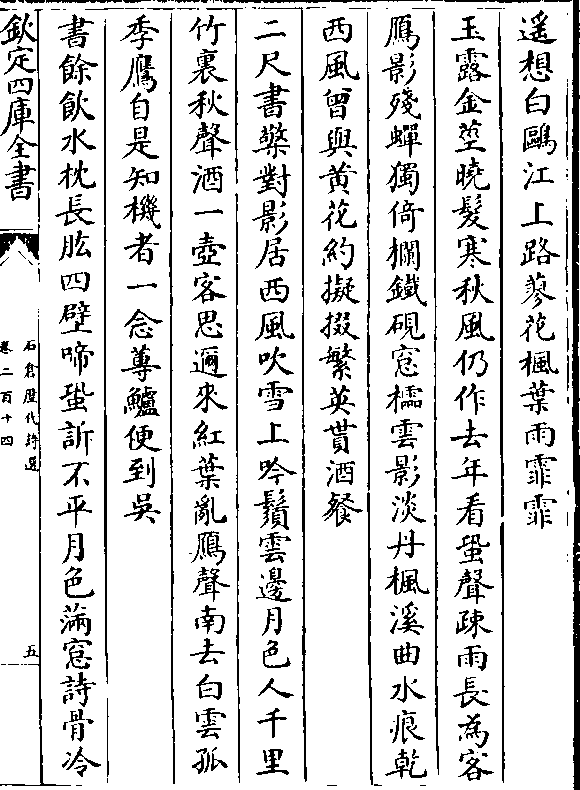 遥想白鷗江上路蓼花楓葉雨霏霏
玉露金莖曉髮寒秋風仍作去年看蛩聲疎雨長為客
鴈影殘蟬獨倚欄鐡硯窓檽雲影淡丹楓溪曲水痕乾
西風曾與黄花約擬掇繁英貰酒餐
二尺書檠對影居西風吹雪上吟鬚雲邊月色人千里
竹裏秋聲酒一壺客思邇來紅葉亂鴈聲南去白雲孤
季鷹自是知機者一念蓴鱸便到吳
書餘飲水枕長肱四壁啼蛩訴不平月色滿窓詩骨冷
欽定四庫全書
石倉歷代詩選
卷二百十四
五